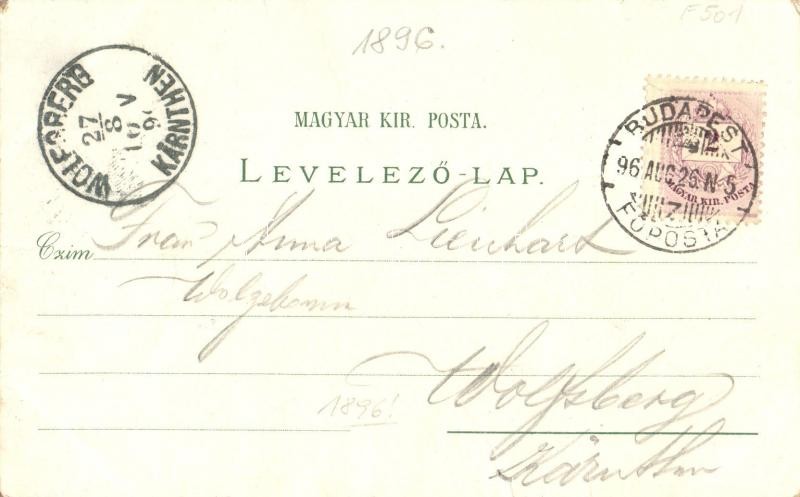 F501
1896.
WOLFSBERG
KÄRNTHEN
27
8
96
MAGYAR KIR. POSTA.
LEVELEZŐ-LAP.
BUDAPEST
96 AUG 26 N 5
FŐPOSTA
2
MAGYAR KIR. POSTA
Czim Frau Anna Lienhart
Wolfsberg
1896!
Kärnthen